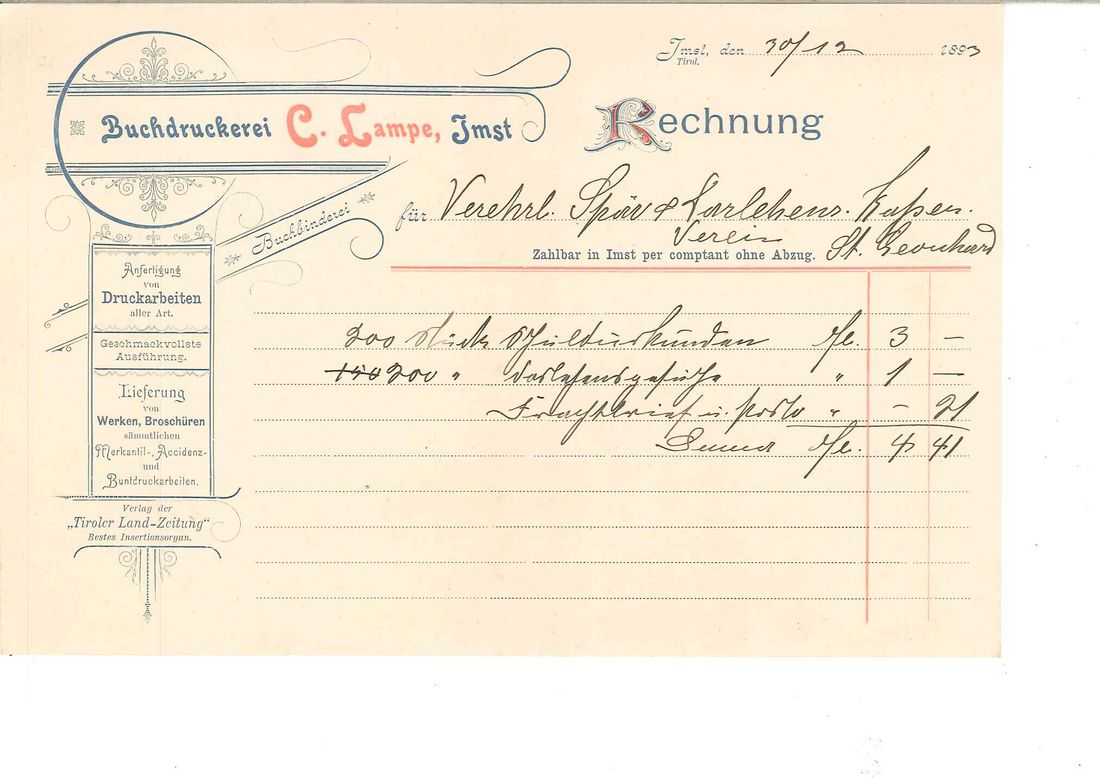 Imst, den 30/12 1893
Tirol.
Buchdruckerei C. Lampe, Imst
Rechnung
Buchbinderei
für Verehrl. Spar & Darlehens. Kassen.
Verein
Zahlbar in Imst per comptant ohne Abzug. St. Leonhard
Anfertigung
von
Druckarbeiten
aller Art.
Geschmackvollste
Ausführung.
Lieferung
von
Werken, Broschüren
sämmtlichen
Merkantil-, Accidenz-
und
Buntdruckarbeiten.
Verlag der
„Tiroler Land-Zeitung“
Bestes Insertionsorgan.
200 Stück Schuldurkunden fl. 3 –
150 200 " Darlehensgesuche " 1 –
Frachtbrief u. Porto " – 21
Summa fl. 4 41